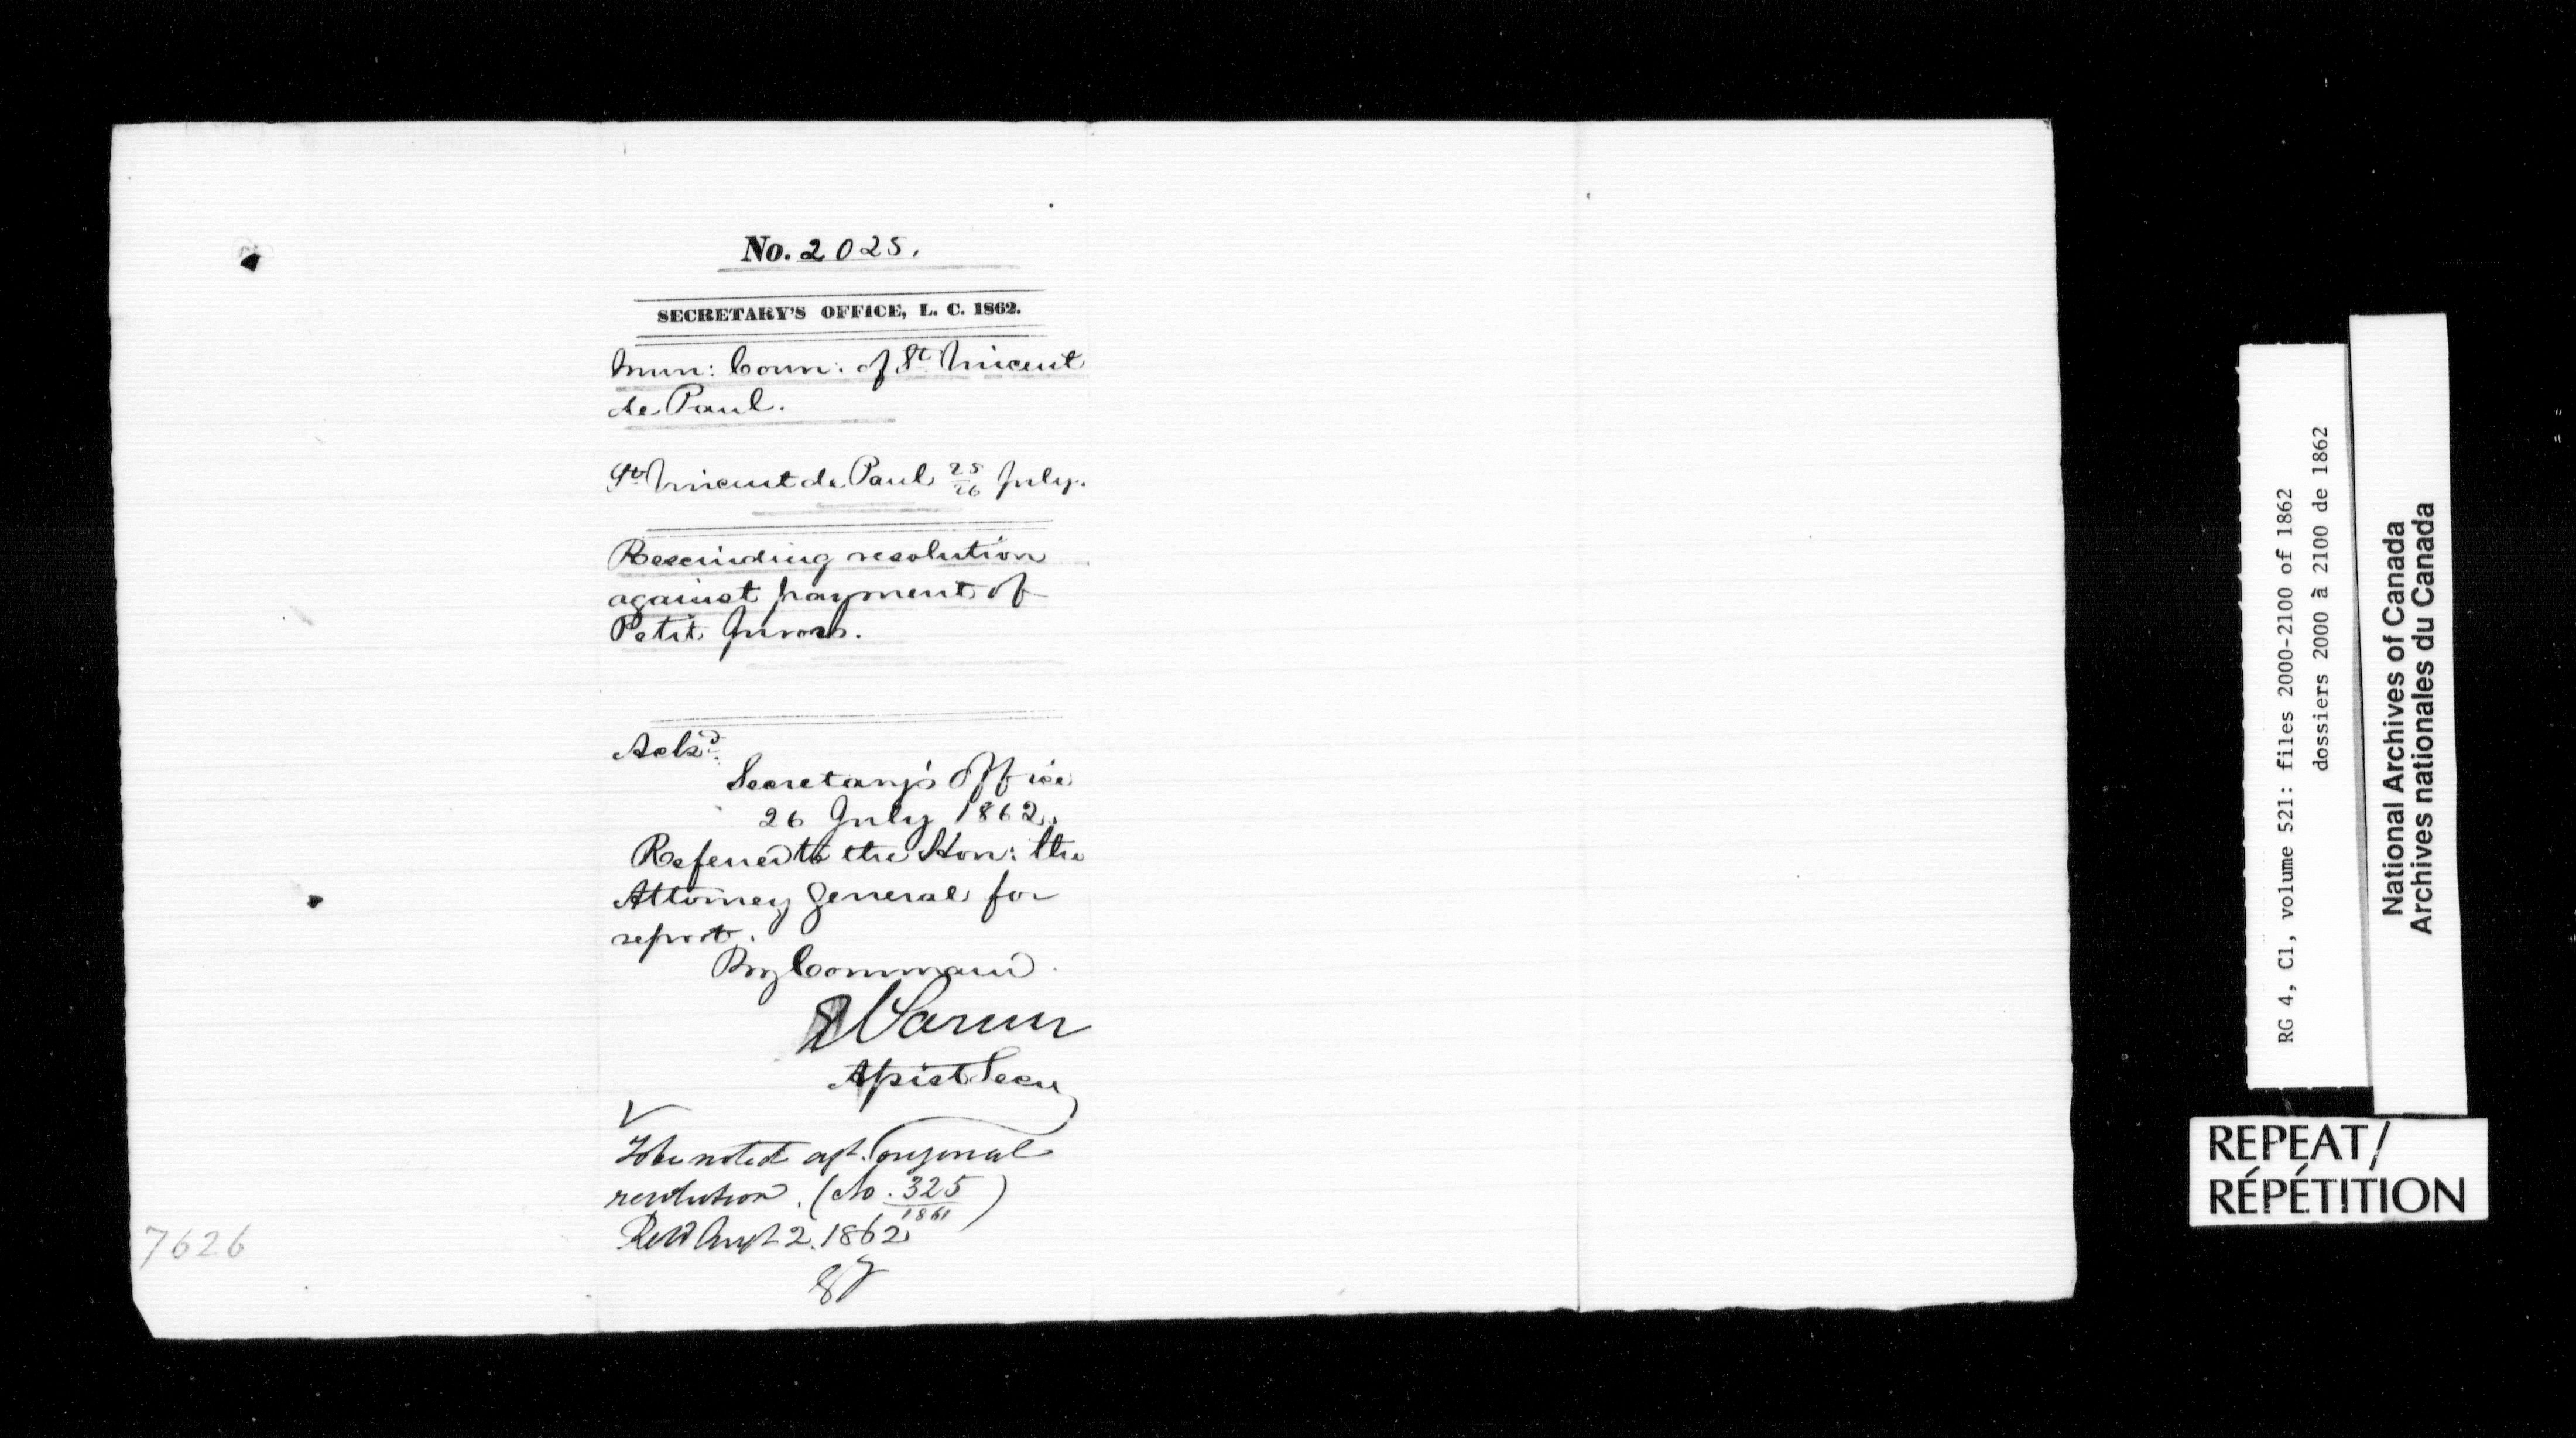 No. 2025.
SECRETARY'S OFFICE, L. C. 1862.
Mun: Coun: of St. Vincent
de Paul.
St. Vincent de Paul 25/26 July.
Rescinding resolution
against payment of
Petit Jurors.
Ackd.
Secretary's Office
26 July 1862.
Referred to the Hon: the
Attorney General for
report.
By Command
Assist Secy
To be noted agt. original
resolution. (No. 325/1861)
Augt 2. 1862
7626
RG 4, C1, volume 521: files 2000-2100 of 1862
dossiers 2000 à 2100 de 1862
National Archives of Canada
Archives nationales du Canada
REPEAT/
RÉPÉTITION